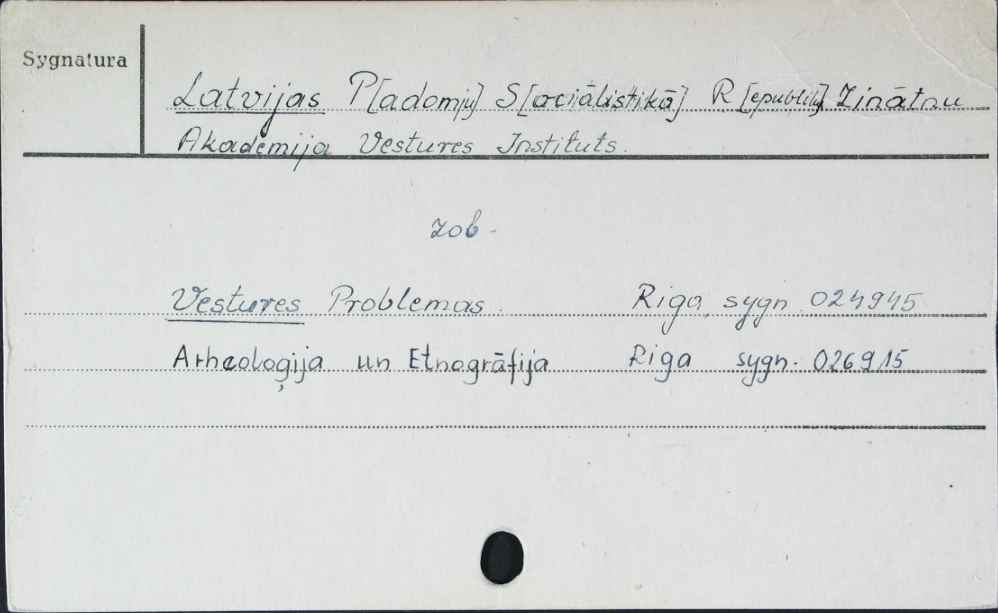 Sygnatura
Latvijas P[adomju] S[ociālistikā] R[epublik] Zinātnu
Akadēmija Vēstures Instituts.
zob.
Vēstures Problemas. Riga, sygn. 024945
Arheoloģija un Etnogrāfija Riga sygn. 026915